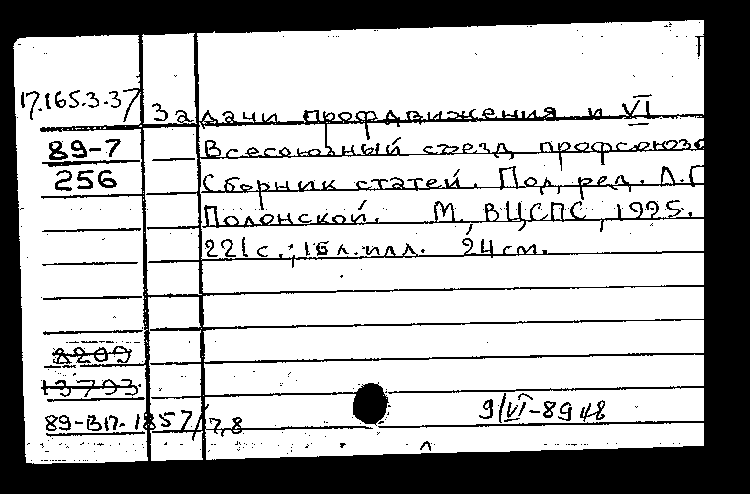 17.165.3.37 Задачи профдвижения и VI
89-7 Всесоюзный съезд профсоюзо
256 Сборник статей. Под ред. Л.Г
Полонской. М., ВЦСПС, 1925.
221с.; 15 л. илл. 24 см.
8209
13793
89-ВП. 1857/7,8 9/VI-89